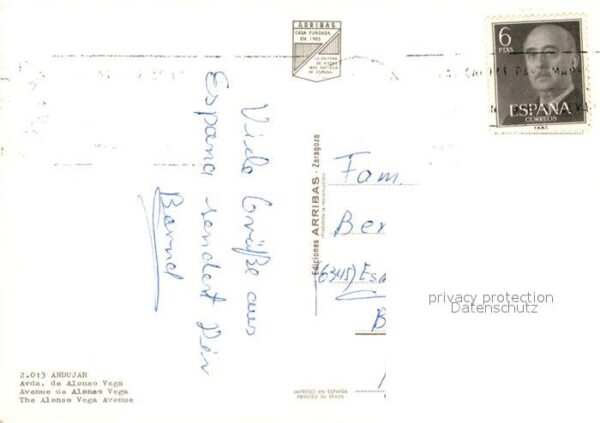 ARRIBAS
CASA FUNDADA
EN 1905
LA EDITORA
DE VISTAS
MAS ANTIGUA
DE ESPAÑA
6
PTAS
ESPAÑA
CORREOS
F.N.M.T.
Viele Grüße aus
Espana sendet Dir
Bernd
Ediciones ARRIBAS - Zaragoza
(Prohibida la reproducción)
Fam.
Ber
(6345) Esa
B
privacy protection
Datenschutz
2.013 ANDUJAR
Avda. de Alonso Vega
Avenue de Alonso Vega
The Alonso Vega Avenue
IMPRESO EN ESPAÑA
PRINTED IN SPAIN